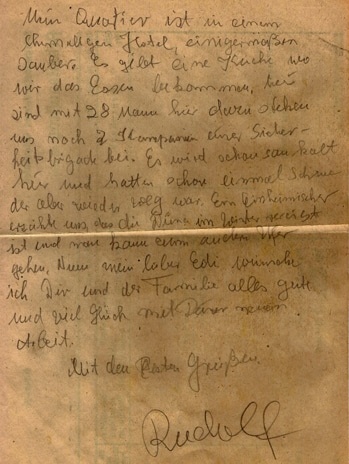 Mein Quatier ist in einem
ehemaligen Hotel, einigermaßen
sauber. Es gibt eine Küche wo
wir das Essen bekommen, 
sind mit 28 Mann hier dazu stehen
uns noch 2 Kompanien einer Sicher-
heitsbrigade bei. Es wird schon saukalt
hier und hatten schon einmal Schnee
der aber wieder weg war. Ein Einheimischer
erzählte uns das die Düna im Winter vereist
ist und man kann zum andern Ufer
gehen. Nun mein lieber Edi wünsche
ich Dir und der Familie alles gute
und viel Glück mit Deiner neuen
Arbeit.
Mit den Besten Grüßen
Rudolf